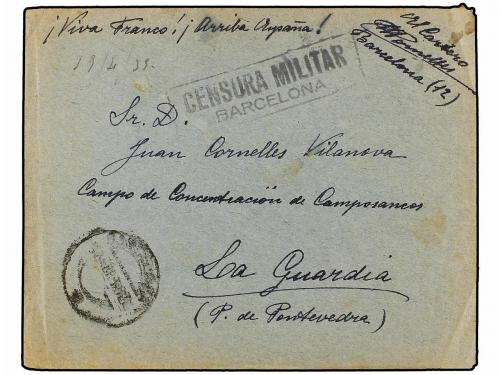 ¡Viva Franco! ¡Arriba España!
Cornelles
Barcelona (12)
CENSURA MILITAR
BARCELONA
Sr. D.
Juan Cornelles Vilanova
Campo de Concentración de Camposancos
La Guardia
(P. de Pontevedra)